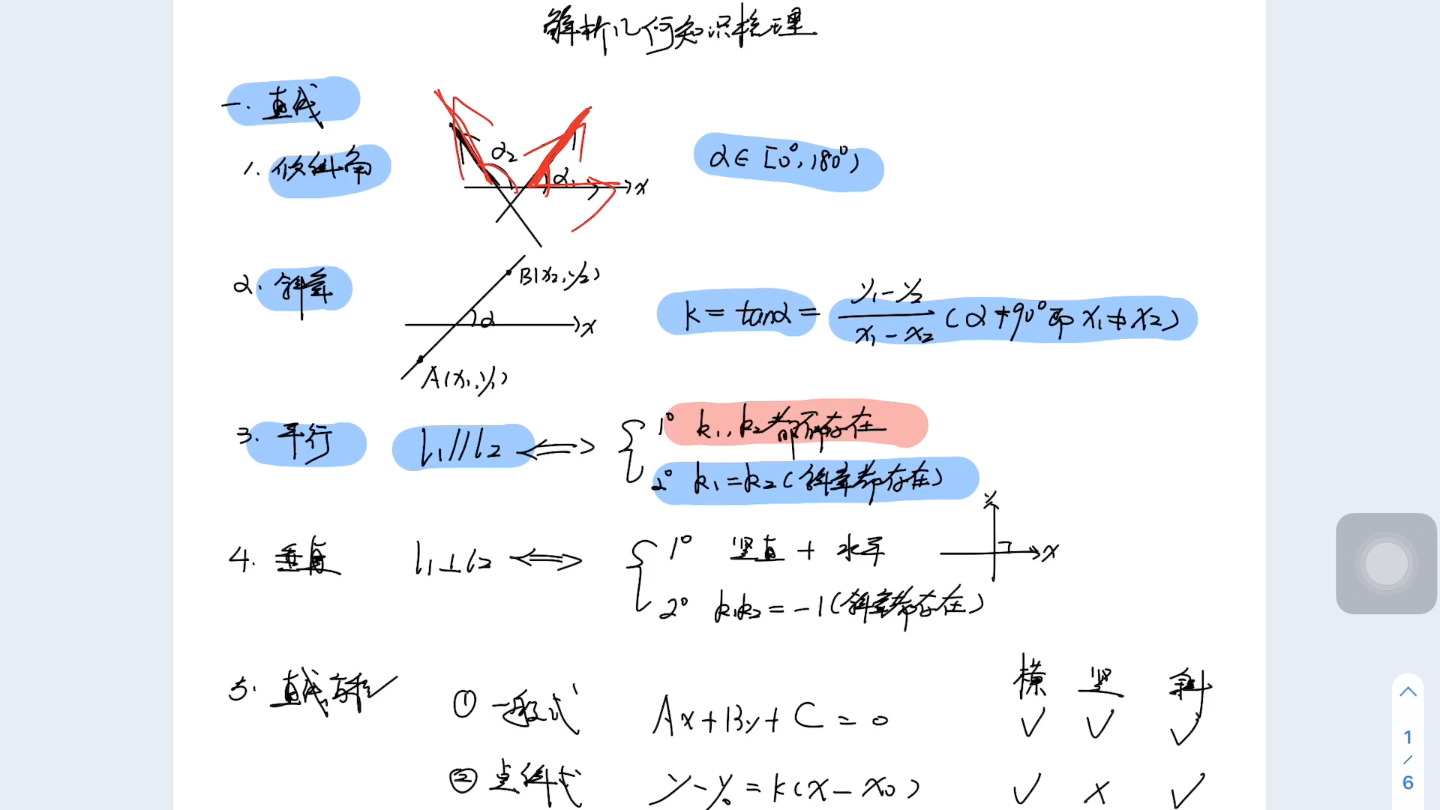 解析几何知识梳理
一. 直线
1. 倾斜角
α₂
α₁
x
α∈[0°,180°)
2. 斜率
B(x₂,y₂)
α
x
A(x₁,y₁)
k=tanα=y₁-y₂/x₁-x₂(α≠90°即x₁≠x₂)
3. 平行 l₁//l₂ ⇔
1° k₁,k₂都不存在
2° k₁=k₂(斜率都存在)
4. 垂直 l₁⊥l₂ ⇔
1° 竖直+水平
y
x
2° k₁k₂=-1(斜率都存在)
5. 直线方程
横 竖 斜
① 一般式 Ax+By+C=0 ✓ ✓ ✓
② 点斜式 y-y₀=k(x-x₀) ✓ × ✓
1
/
6